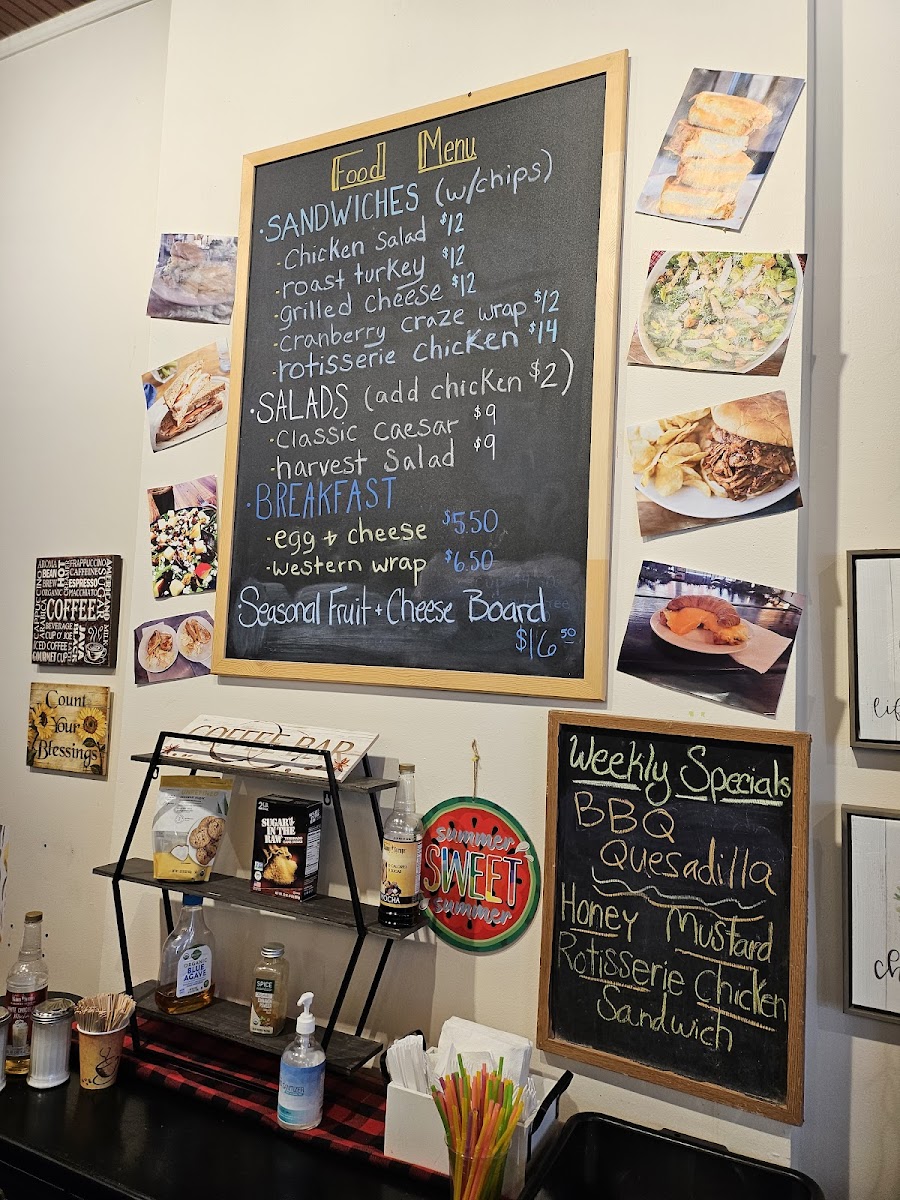 Food Menu
·SANDWICHES (w/chips)
-Chicken Salad $12
-roast turkey $12
-grilled cheese $12
-cranberry craze wrap $12
-rotisserie chicken $14
·SALADS (add chicken $2)
-Classic Caesar $9
-harvest Salad $9
·BREAKFAST
-egg + cheese $5.50
-western wrap $6.50
·Seasonal Fruit + Cheese Board
$16.50
Weekly Specials
BBQ
Quesadilla
Honey Mustard
Rotisserie Chicken
Sandwich
COFFEE BAR
summer
SWEET
summer
2LB
SUGAR
IN THE
RAW
MOCHA
ORGANIC
BLUE
AGAVE
SPICE
SANITIZER
AROMA
FRAPPUCCINO
BEAN
CAFFEINE
BREW
ESPRESSO
ORGANIC
MACCHIATO
CAPPUCCINO
SUGAR
COFFEE
BEVERAGE
CUP O' JOE
ICED COFFEE
GOURMET CUP
JAVA
Count
Your
Blessings
lif
ch